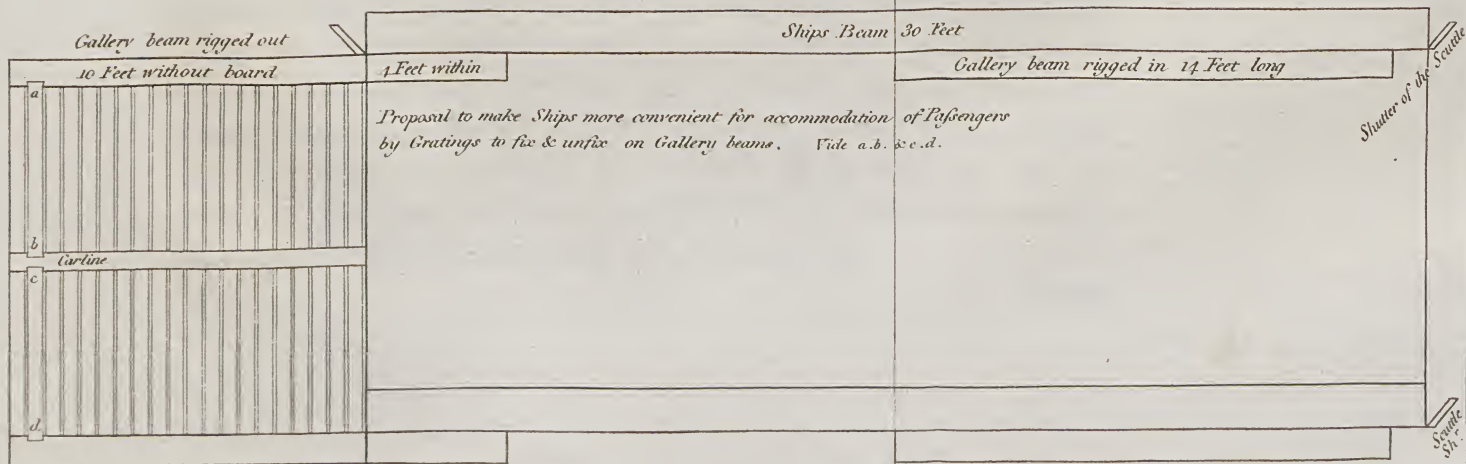 Gallery beam rigged out
Ships Beam 30 Feet
10 Feet without board
4 Feet within
Gallery beam rigged in 14 Feet long
Shutter of the Scuttle
a
Proposal to make Ships more convenient for accommodation of Paſsengers
by Gratings to fix & unfix on Gallery beams. Vide a.b. & c.d.
b
Carline
c
d
Scuttle
Shr.